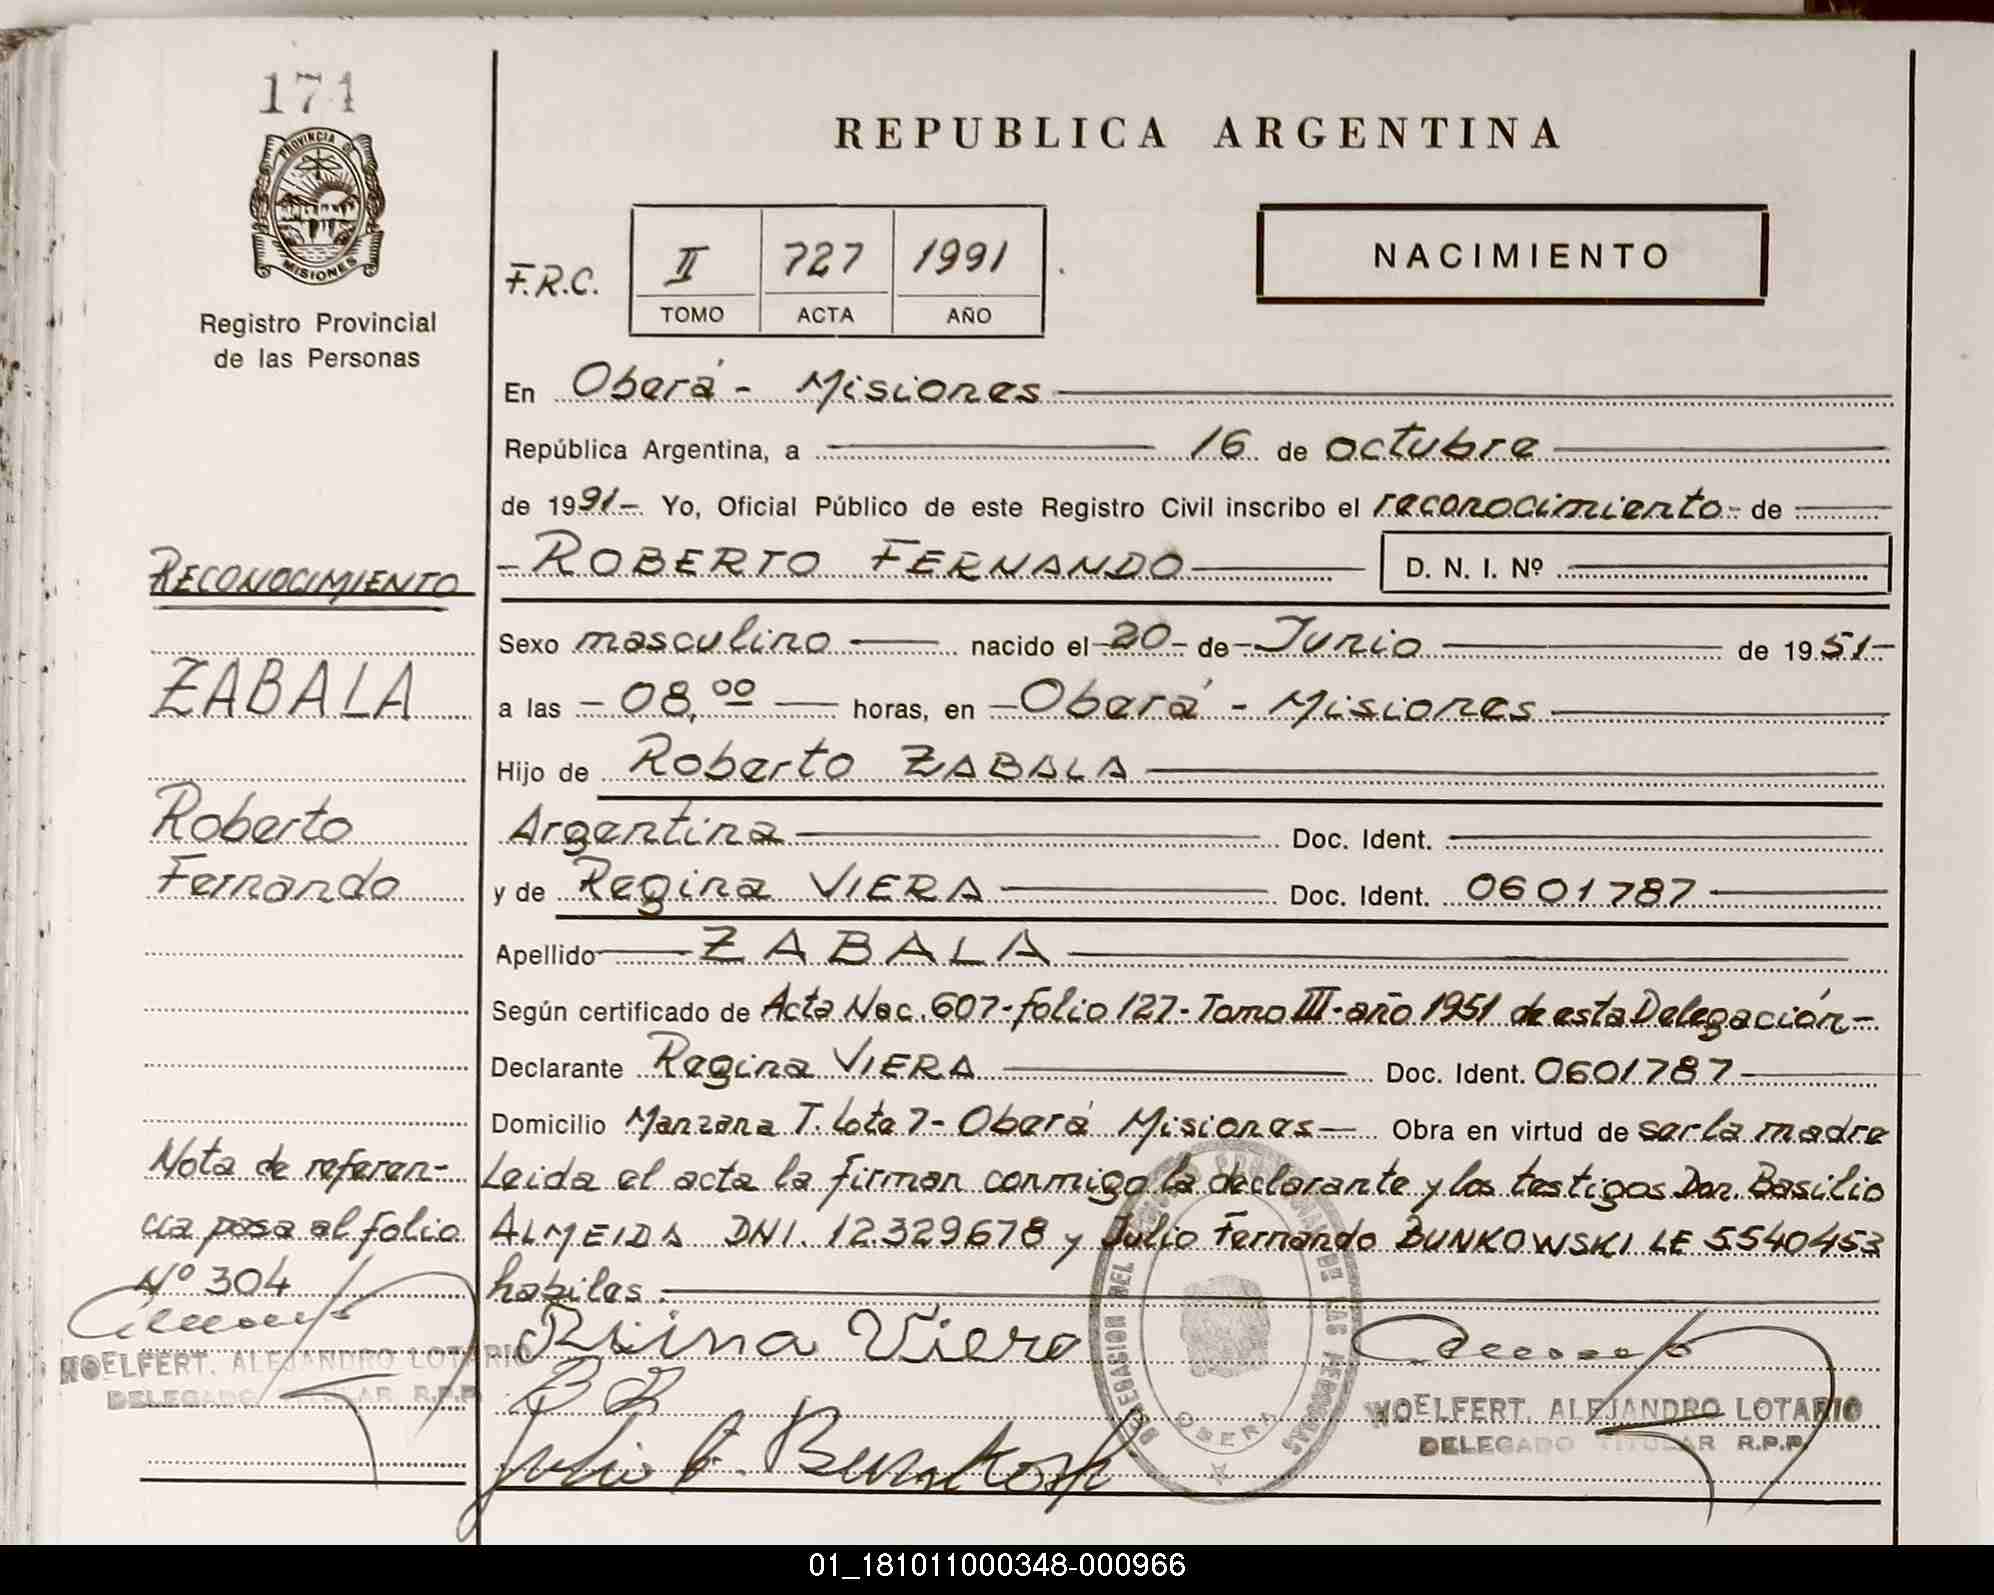 174
PROVINCIA DE
MISIONES
Registro Provincial
de las Personas
REPUBLICA ARGENTINA
NACIMIENTO
F.R.C. II 727 1991
TOMO ACTA AÑO
En Oberá - Misiones
República Argentina, a 16 de octubre
de 1991- Yo, Oficial Público de este Registro Civil inscribo el reconocimiento - de
- ROBERTO FERNANDO D. N. I. Nº
Sexo masculino nacido el - 20 - de - Junio de 1951-
a las - 08,00 horas, en - Oberá - Misiones
Hijo de Roberto ZABALA
Argentina Doc. Ident.
y de Regina VIERA Doc. Ident. 0601787
Apellido ZABALA
Según certificado de Acta Nac. 607- folio 127- Tomo III- año 1951 de esta Delegación-
Declarante Regina VIERA Doc. Ident. 0601787
Domicilio Manzana T. Lote 7 - Oberá Misiones Obra en virtud de ser la madre
Leida el acta la firman conmigo la declarante y los testigos Don Basilio
ALMEIDA DNI. 12.329678 y Julio Fernando BUNKOWSKI LE 5540453
habiles.
RECONOCIMIENTO
ZABALA
Roberto
Fernando
Nota de referen-
cia pasa al folio
Nº 304
WOELFERT, ALEJANDRO LOTARIO
DELEGADO TITULAR R.P.P.
Reina Viera
Julio F. Bunkowski
DELEGACION DEL REGISTRO PROVINCIAL DE LAS PERSONAS
OBERA
WOELFERT, ALEJANDRO LOTARIO
DELEGADO TITULAR R.P.P.
01_181011000348-000966